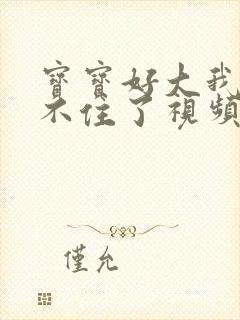 寶寶好大我
不住了視頻
僅允